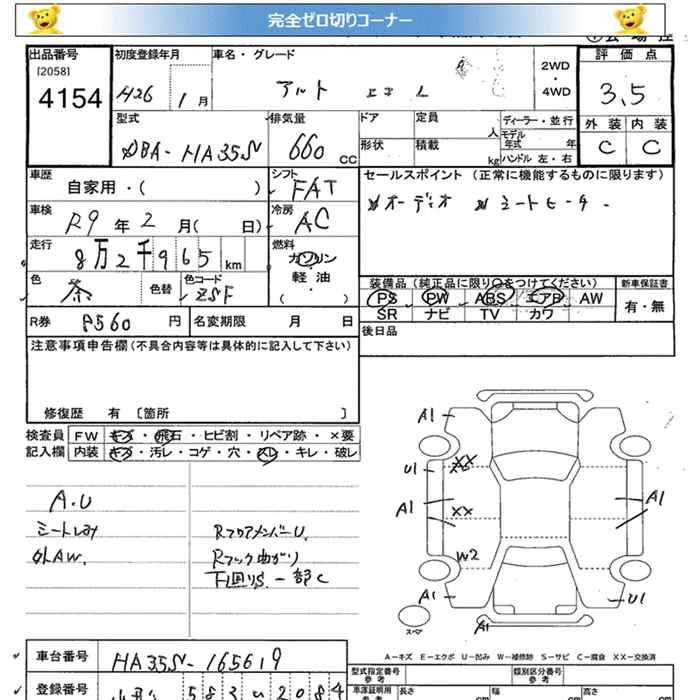 完全ゼロ切りコーナー
出品番号 初度登録年月 車名・グレード 2WD ・ 4WD 評価点
[2058]
4154 H26 1月 アルト 3.5
型式 排気量 ドア 定員 人 ディーラー・並行 外装 内装
DBA-HA35S 660 CC 形状 積載 kg モデル年式 年 ハンドル 左・右 C C
車歴 シフト セールスポイント (正常に機能するものに限ります)
自家用・( ) FAT オーディオ シートヒーター
車検 冷房
R9年2月( 日) AC
走行 燃料
8万2千965km ガソリン
軽油
( )
色 色替 色コード 装備品 (純正品に限り○をつけてください) 新車保証書
茶 ZSF PS PW ABS エアB AW 有・無
SR ナビ TV カワ
R券 8560円 名変期限 月 日 後日品
注意事項申告欄(不具合内容等は具体的に記入して下さい)
修復歴 有 [箇所 ]
検査員 FW キズ・飛石・ヒビ割・リペア跡・×要
記入欄 内装 キズ・汚レ・コゲ・穴・スレ・キレ・破レ
A.U
シートしみ RコアメンバーU.
外AW. Rフック曲がり
下回りS. 一部C
A1
U1 XX
A1 XX A1
W2
A1 U1
スペア A1
A=キズ E=エクボ U=凹み W=補修跡 S=サビ C=腐食 XX=交換済
車台番号 HA35S-165619
型式指定番号 類別区分番号
登録番号 583 2084
車庫証明用参考 長さ cm 幅 cm 高さ cm